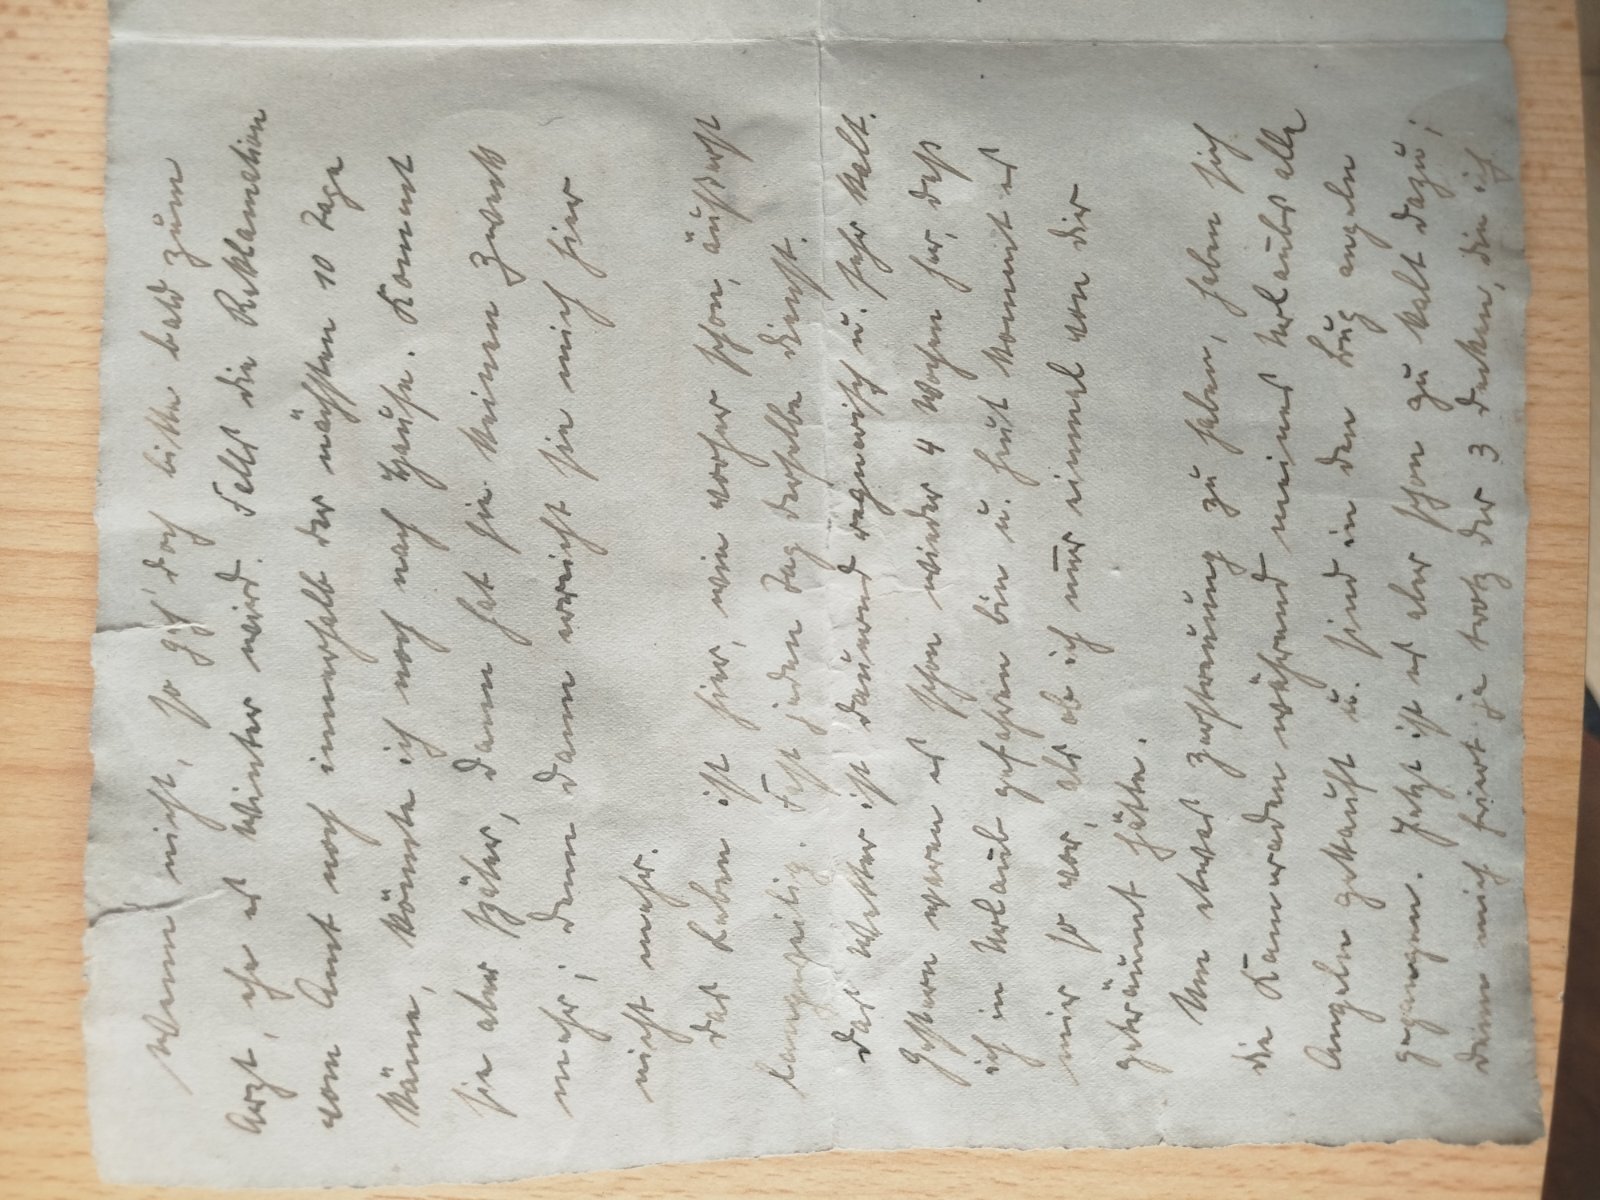 Wenn nicht, so geh' doch bitte bald zum
Arzt, ehe es Winter wird. Falls die Reklamation
vom Amt noch innerhalb der nächsten 10 Tage
käme, könnte ich noch nach Hause. Kommt
sie aber später, dann hat sie keinen Zweck
mehr; denn dann erreicht sie mich hier
nicht mehr.
Das Leben ist hier, wie vorher schon, äußerst
langweilig. Fast jeden Tag derselbe Dienst.
Das Wetter ist dauernd regnerisch u. sehr kalt.
Gestern waren es schon wieder 4 Wochen her, daß
ich in Urlaub gefahren bin u. heut kommt es
mir so vor, als ob ich nur einmal von dir
geträumt hätte.
Um etwas Zerstreuung zu haben, haben sich
die Kameraden während meines Urlaubs alle
Angeln gekauft u. sind in den Bug angeln
gegangen. Jetzt ist es aber schon zu kalt dazu;
denn mich friert ja trotz der 3 Decken, die ich